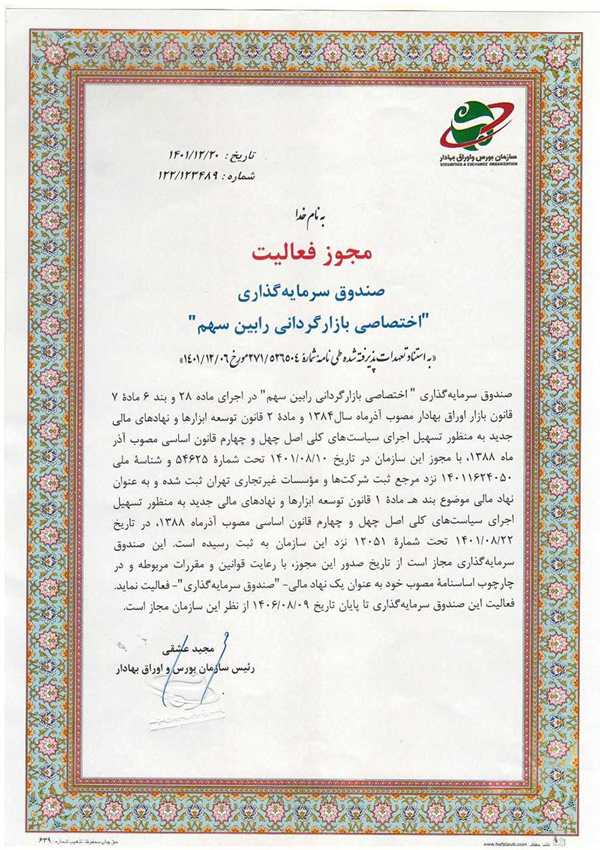 سازمان بورس و اوراق بهادار
SECURITIES & EXCHANGE ORGANIZATION
تاریخ : ۱۴۰۱/۱۲/۲۰
شماره : ۱۲۲/۱۲۳۴۸۹
به نام خدا
مجوز فعالیت
صندوق سرمایه‌گذاری
"اختصاصی بازارگردانی رابین سهم"
«به استناد تعهدات پذیرفته شده طی نامه شمارۀ ۲۷۱/۵۲۶۵۰۴ مورخ ۱۴۰۱/۱۲/۰۶»
صندوق سرمایه‌گذاری " اختصاصی بازارگردانی رابین سهم" در اجرای ماده ۲۸ و بند ۶ مادۀ ۷
قانون بازار اوراق بهادار مصوب آذرماه سال۱۳۸۴ و مادۀ ۲ قانون توسعه ابزارها و نهادهای مالی
جدید به منظور تسهیل اجرای سیاست‌های کلی اصل چهل و چهارم قانون اساسی مصوب آذر
ماه ۱۳۸۸، با مجوز این سازمان در تاریخ ۱۴۰۱/۰۸/۱۰ تحت شمارۀ ۵۴۶۲۵ و شناسۀ ملی
۱۴۰۱۱۶۲۴۰۵۰ نزد مرجع ثبت شرکت‌ها و مؤسسات غیرتجاری تهران ثبت شده و به عنوان
نهاد مالی موضوع بند هـ مادۀ ۱ قانون توسعه ابزارها و نهادهای مالی جدید به منظور تسهیل
اجرای سیاست‌های کلی اصل چهل و چهارم قانون اساسی مصوب آذرماه ۱۳۸۸، در تاریخ
۱۴۰۱/۰۸/۲۲ تحت شمارۀ ۱۲۰۵۱ نزد این سازمان به ثبت رسیده است. این صندوق
سرمایه‌گذاری مجاز است از تاریخ صدور این مجوز، با رعایت قوانین و مقررات مربوطه و در
چارچوب اساسنامۀ مصوب خود به عنوان یک نهاد مالی- "صندوق سرمایه‌گذاری"- فعالیت نماید.
فعالیت این صندوق سرمایه‌گذاری تا پایان تاریخ ۱۴۰۶/۰۸/۰۹ از نظر این سازمان مجاز است.
مجید عشقی
رئیس سازمان بورس و اوراق بهادار
حق چاپ محفوظ، تذهیب شماره : ۶۳۹
www.hafizauk.com